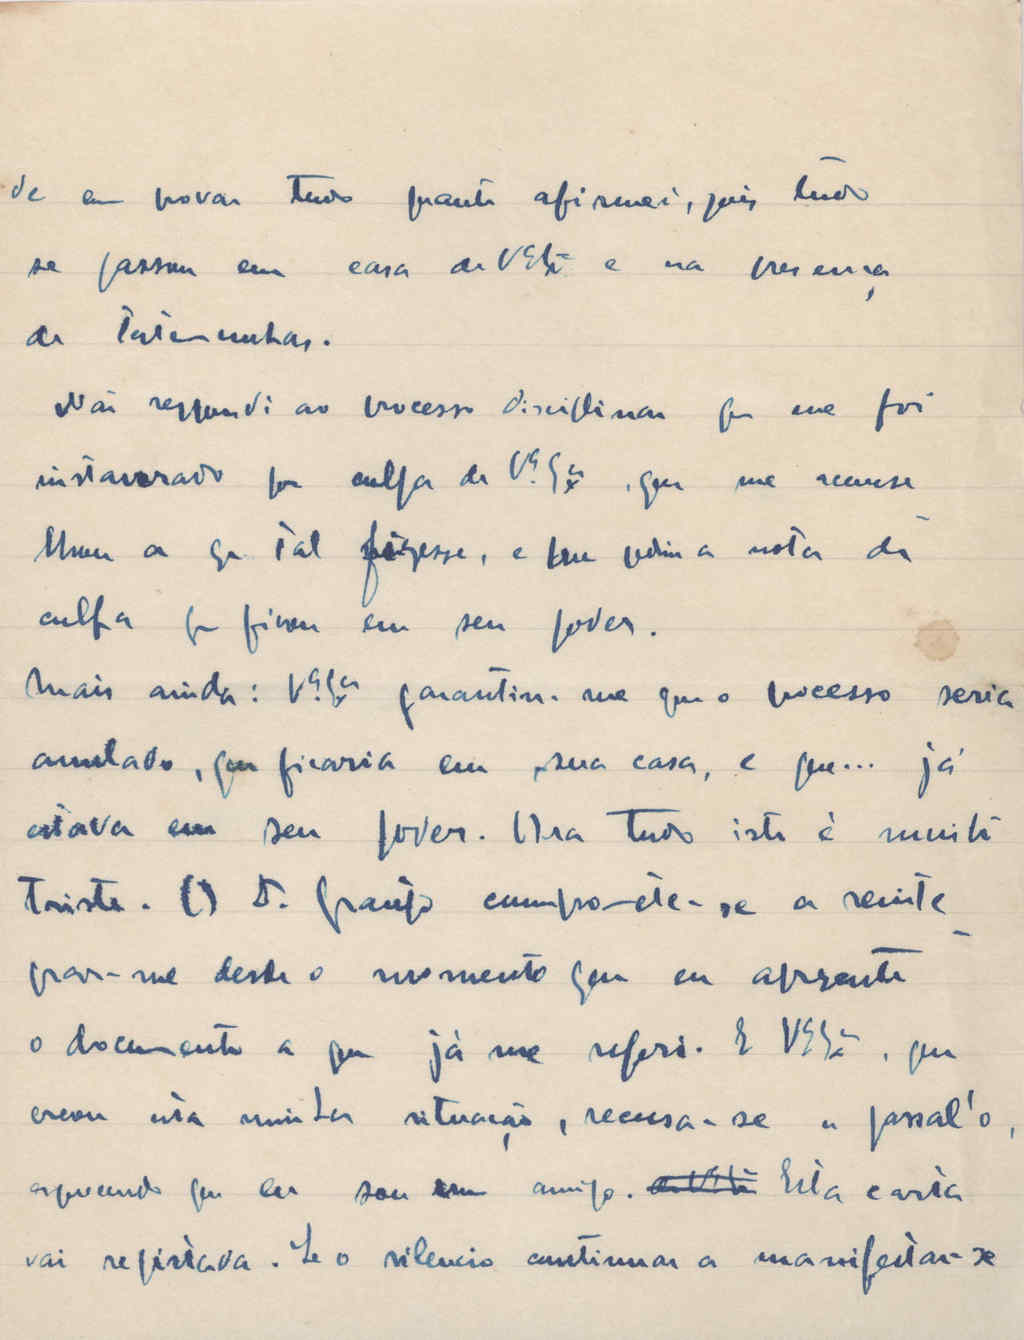 de em provar tudo quanto afirmei, pois tudo
se passou em casa de V. Exª e na presença
de testemunhas.
Não respondi ao processo disciplinar que me foi
instaurado por culpa de V. Exª, que me
a que tal fizesse, e me pediu a nota da
culpa que ficou em seu poder.
Mais ainda: V. Exª garantiu-me que o processo seria
anulado, que ficaria em sua casa, e que... já
estava em seu poder. Ora tudo isto é muito
triste. O Dr. Granjo compromete-se a reinte
grar-me desde o momento que eu apresente
o documento a que já me referi. E V. Exª, que
creou esta minha situação, recusa-se a passal'o,
esquecendo que eu sou um amigo. Esta carta
vai registada. Se o silencio continuar a manifestar-se